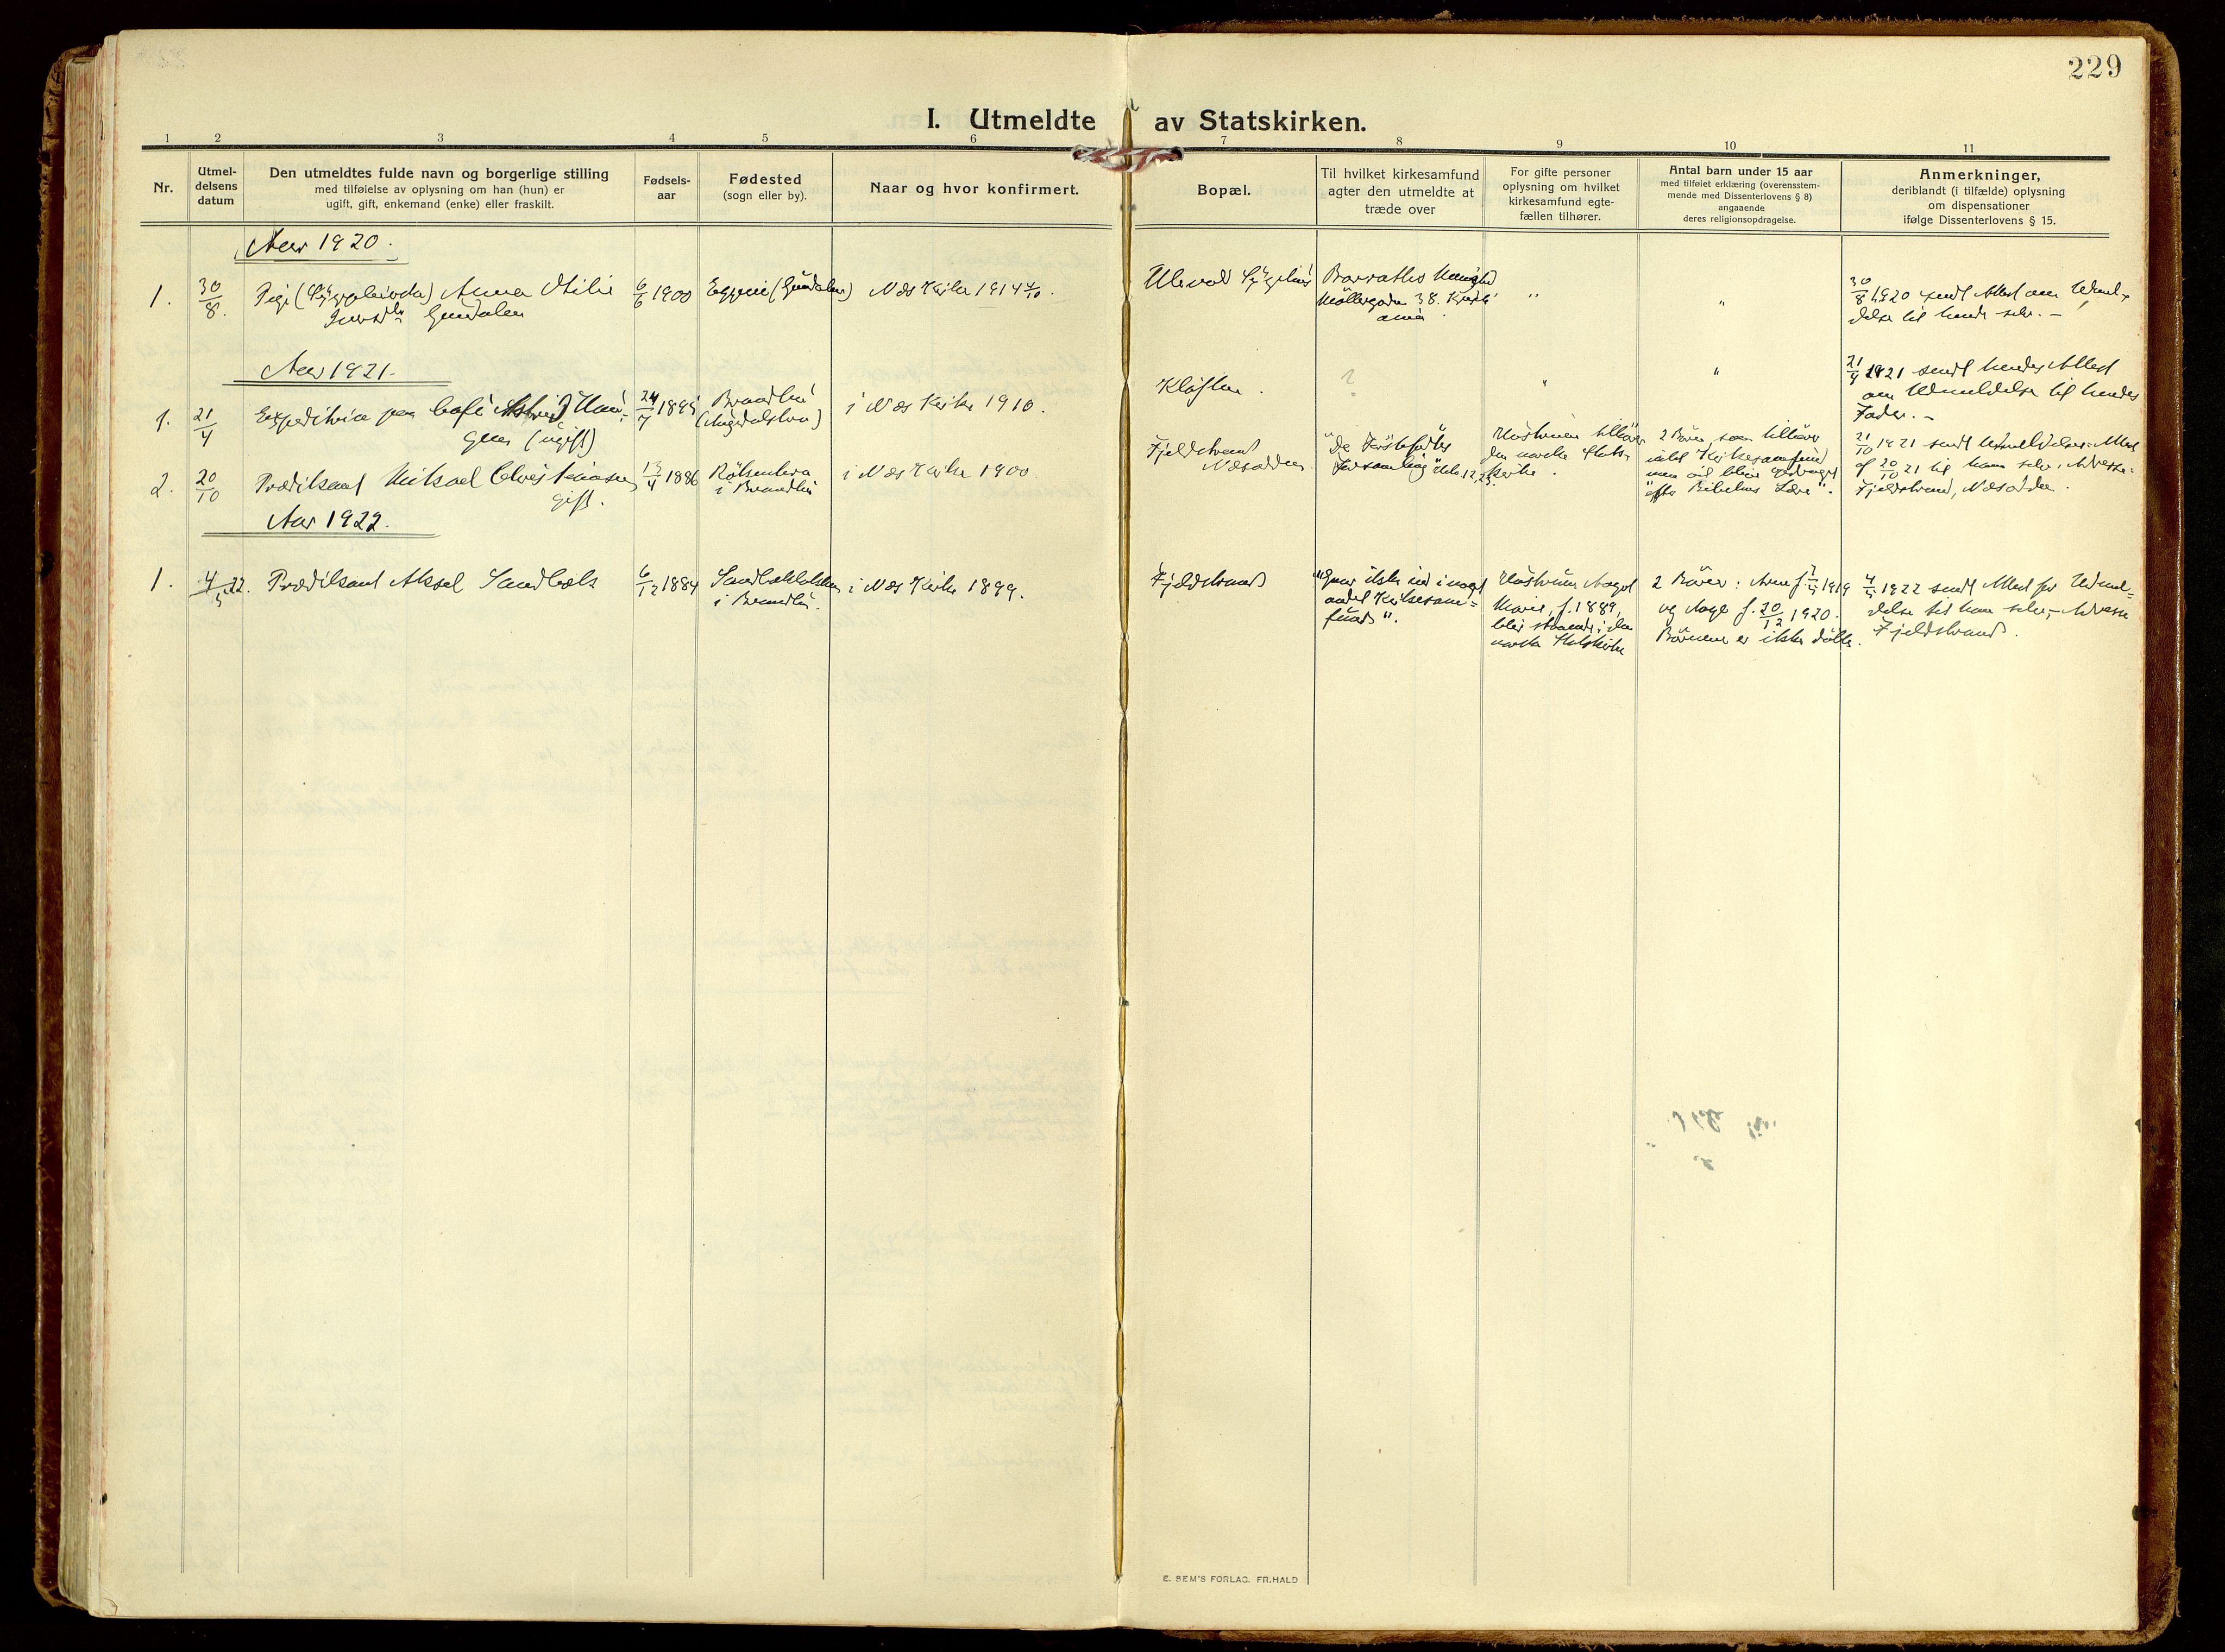 229
I. Utmeldte av Statskirken.
1 2 3 4 5 6 7 8 9 10 11
Nr.
Utmel-
delsens
datum
Den utmeldtes fulde navn og borgerlige stilling
med tilføielse av oplysning om han (hun) er
ugift, gift, enkemand (enke) eller fraskilt.
Fødsels-
aar
Fødested
(sogn eller by).
Naar og hvor konfirmert.
Bopæl.
Til hvilket kirkesamfund
agter den utmeldte at
træde over
For gifte personer
oplysning om hvilket
kirkesamfund egte-
fællen tilhører.
Antal barn under 15 aar
med tilføiet erklæring (overensstem-
mende med Dissenterlovens § 8)
angaaende
deres religionsopdragelse.
Anmerkninger,
deriblandt (i tilfælde) oplysning
om dispensationer
ifølge Dissenterlovens § 15.
Aar 1920.
1.
30/8.
Pige Anna Otilie
6/6 1900
Næs Kirke 1914 4/10.
Ulevol
Møllergaden 38. Krist
ania
"
"
30/8 1920 sendt Attest om Udmel-
delse til hende selv. -
Aar 1921.
1.
21/4
Expeditrice paa Café
(ugift)
24/7 1895
Brandbu
i Næs Kirke 1910.
Kløften.
?
"
"
21/4 1921 sendt hendes Attest
om Udmeldelse til hendes
Fader. -
2.
20/10
Prædikant Mikael Christiansen
gift.
13/4 1886
i Brandbu
i Næs Kirke 1900.
Fjeldstrand
Næsodden
"De Førstefødtes
Forsamling" Heb. 12,23.
Hustruen tilhører
den norske Stats-
kirke.
2 Børn, som tilhører
intet Kirkesamfund
men vil blive opdraget
"efter Bibelens Lære".
21/10 1921 sendt Udmeldelses-Attest
af 20/10 21 til ham selv. Adresse:
Fjeldstrand, Næsodden.
Aar 1922.
1.
4/5 22.
Prædikant Aksel Sandbæk
6/12 1884
i Brandbu.
i Næs Kirke 1899.
Fjeldstrand
"Gaar ikke ind i noget
andet Kirkesam-
fund".
Hustruen Aagot
Marie, f. 1889,
blir staaende i den
norske Statskirke
2 Børn: Arne f. 1919
og Aage f. 20/12 1920.
Børnene er ikke døbte.
4/5 1922 sendt Attest for Udmel-
delse til ham selv, - Adresse
Fjeldstrand.
E. SEM'S FORLAG. FR.HALD